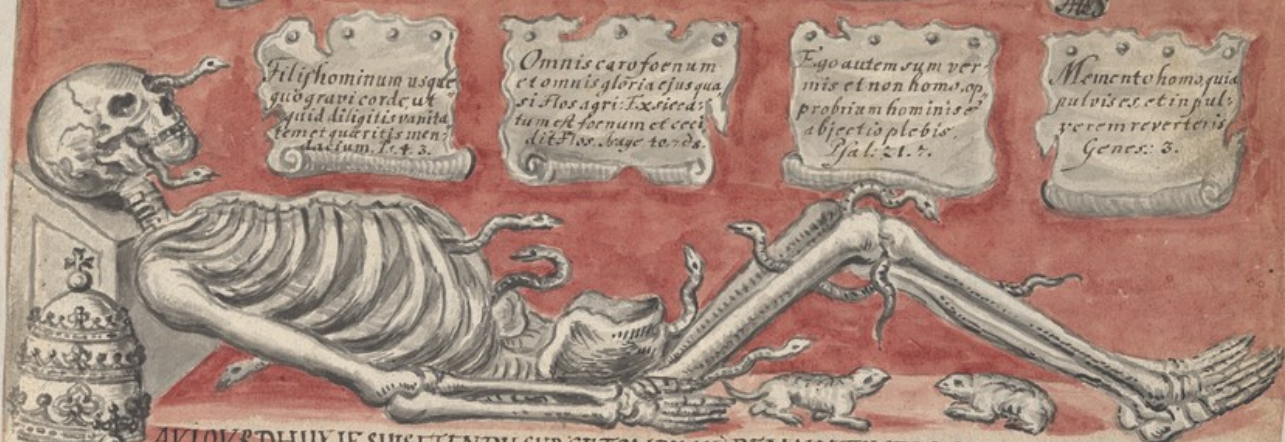 Filij hominum usque
quo gravi corde, ut
quid diligitis vanita
tem et quæritis men-
dacium. Ps. 4. 3.
Omnis caro foenum
et omnis gloria ejus qua
si flos agri: Exsicca-
tum est foenum et ceci
dit flos. 40. 7. 8.
Ego autem sum ver-
mis et non homo, op
probrium hominis et
abjectio plebis.
Psal: 21. 7.
Memento homo, quia
pulvis es, et in pul-
verem reverteris
Genes: 3.